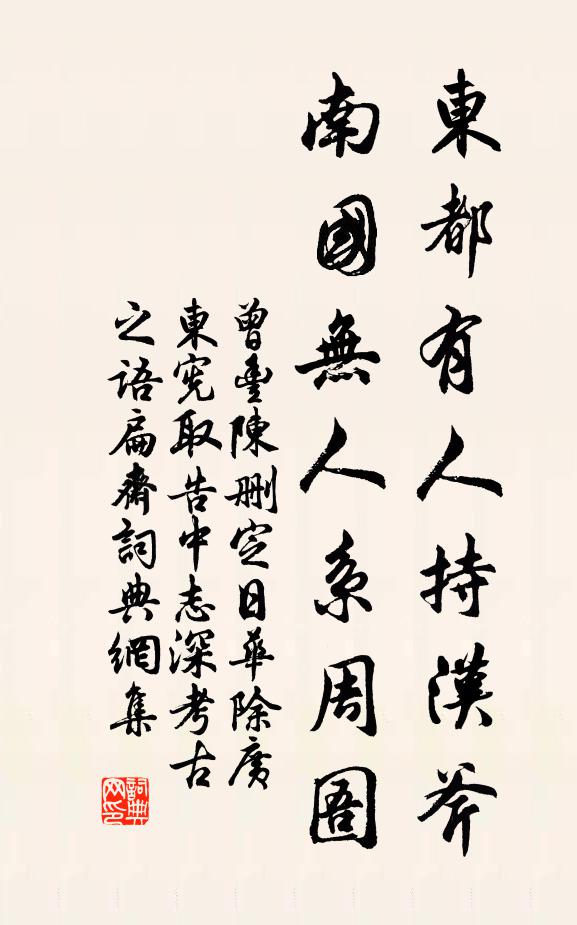 東都有人持漢斧
南國無人系周圄
曾豐陳刪定日華除廣
東憲取告中志深考古
之語扁齋詞典網集
詞典网印